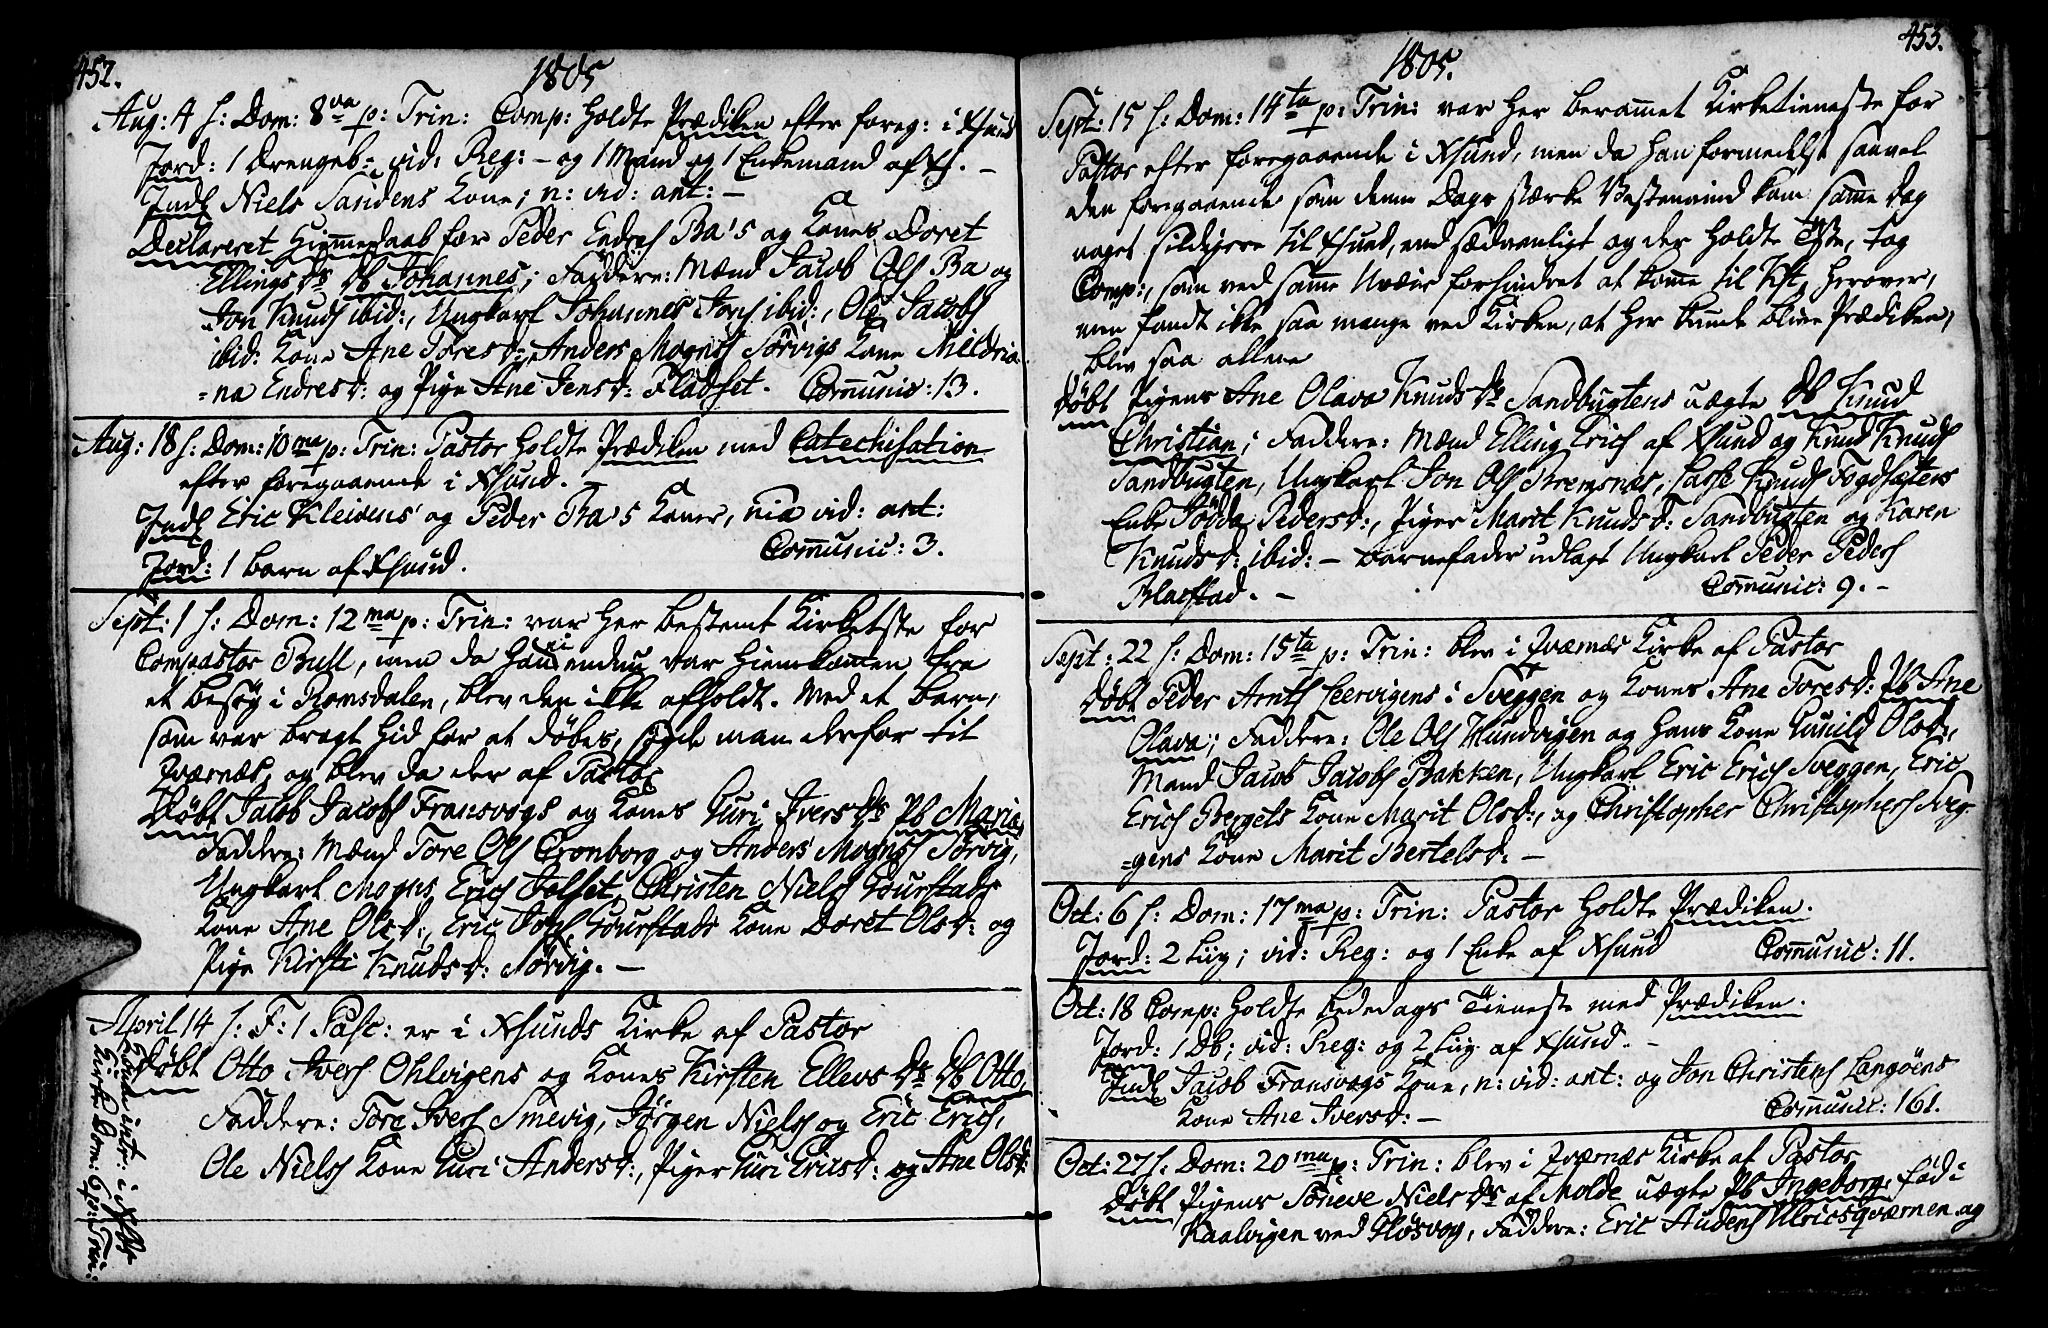 452.
1805
Aug: 4 s: Dom: 8va p: Trin: Comp: holdte Prædiken efter foreg: i Xsund
Jord: 1 Drengeb: vid: Reg: - og 1 Mand og 1 Enkemand af Xs. -
Indl Niels Sandens Kone; n: vid: ant: -
Declareret Hiemmedaab for Peder Endres Ba's og Kones Doret
Ellingsdr Db Johannes; Faddere: Mænd Jacob Ols Ba og
Jon Knuds ibid:, Ungkarl Johannes Jons ibid:, Ole Jacobs
ibid: Kone Ane Toresd:, Anders Mogns Sørvigs Kone Mildria
=na Endresd: og Pige Ane Jensd: Fladset. Communic: 13.
Aug: 18 s: Dom: 10ma p: Trin: Pastor holdte Prædiken med Catechisation
efter foregaaende i Xsund. -
Indl Eric Kleivens og Peder Ba's Koner, nia vid: ant:
Jord: 1 Barn af Xsund. Communic: 3.
Sept: 1 s: Dom: 12ma p: Trin: var her bestemt Kirketste for
Compastor Bull, men da han ei endnu var hiemkommen fra
et besøg i Romsdalen, blev den ikke afholdt. Med et Barn,
som var bragt hid for at døbes, søgde man derfor til
Qværnæs, og blev da der af Pastor
Døbt Jacob Jacobs Fransvogs og Kones Guri Iversdr Pb Maria,
Faddere: Mænd Tore Ols Cronborg og Anders Mogns Sørvig,
Ungkarl Mogns Erics Folset, Christen Niels Gourstads
Kone Ane Olsd:, Eric Jons Gourstads Kone Doret Olsd: og
Pige Kirsti Knudsd: Sørvig. -
April 14 s: F: 1 Pasc: er i Xsunds Kirke af Pastor
Døbt Otto Ivers Ohlvigens og Kones Kirsten Ellevsdr Db Otto,
Faddere: Tore Ivers Smevig, Jørgen Niels og Eric Erics,
Ole Niels Kone Guri Andersd:, Piger Guri Ericsd: og Ane Olsd:
Kirke Dom: 6 p: Trin:
455.
1805.
Sept: 15 s: Dom: 14ta p: Trin: var her berammet Kirketieneste for
Pastor efter foregaaende i Xsund, men da han formedelst saavel
den foregaaende som denne Dags stærke Vestenvind kom samme Dag
noget sildigere til Xsund, end sædvanligt og der holdte Tste, tog
Comp:, som ved samme Uveir forhindret at komme til Kft, herover,
men fandt ikke saa mange ved Kirken, at her kunde blive Prædiken,
blev saa allene
Døbt Pigens Ane Olava Knudsdr Sandbugtens uægte Db Knud
Christian; Faddere: Mænd Elling Erics af Xsund og Knud Knuds
Sandbugten, Ungkarl Jon Ols Bremsnæs, Lasse Knuds Fogdsæters
Enke Søjda Pedersd:, Piger Marit Knudsd: Sandbugten og Karen
Knudsd: ibid: - Barnefader udlagt Ungkarl Peder Peders
Blaestad. - Communic: 9. -
Sept: 22 s: Dom: 15ta p: Trin: blev i Qværnæs Kirke af Pastor
Døbt Peder Arnts Leervigens i Sveggen og Kones Ane Toresd: Pb Ane
Olava; Faddere: Ole Ols Hundvigen og hans Kone Gunild Olsd:,
Mand Jacob Jacobs Bakken, Ungkarl Eric Erics Sveggen, Eric
Erics Bergets Kone Marit Olsd:, og Christopher Christophers Sveg-
=gens Kone Marit Bertelsd: -
Oct: 6 s: Dom: 17ma p: Trin: Pastor holdte Prædiken.
Jord: 2 Liig; vid: Reg: og 1 Enke af Xsund Communic: 11.
Oct: 18 Comp: holdte Bededags Tieneste med Prædiken.
Jord: 1 Db; vid: Reg: og 2 Liig af Xsund. -
Indl Jacob Fransvogs Kone, n: vid: ant: og Jon Christens Langøens
Kone Ane Iversd: - Communic: 161.
Oct: 27 s: Dom: 20ma p: Trin: blev i Qværnæs Kirke af Pastor
Døbt Pigens Søneve Nielsdr af Molde uægte Pb Ingeborg, fød i
Kaalvigen ved Gløsvog, Faddere: Eric Audens Ulricsqværnen og